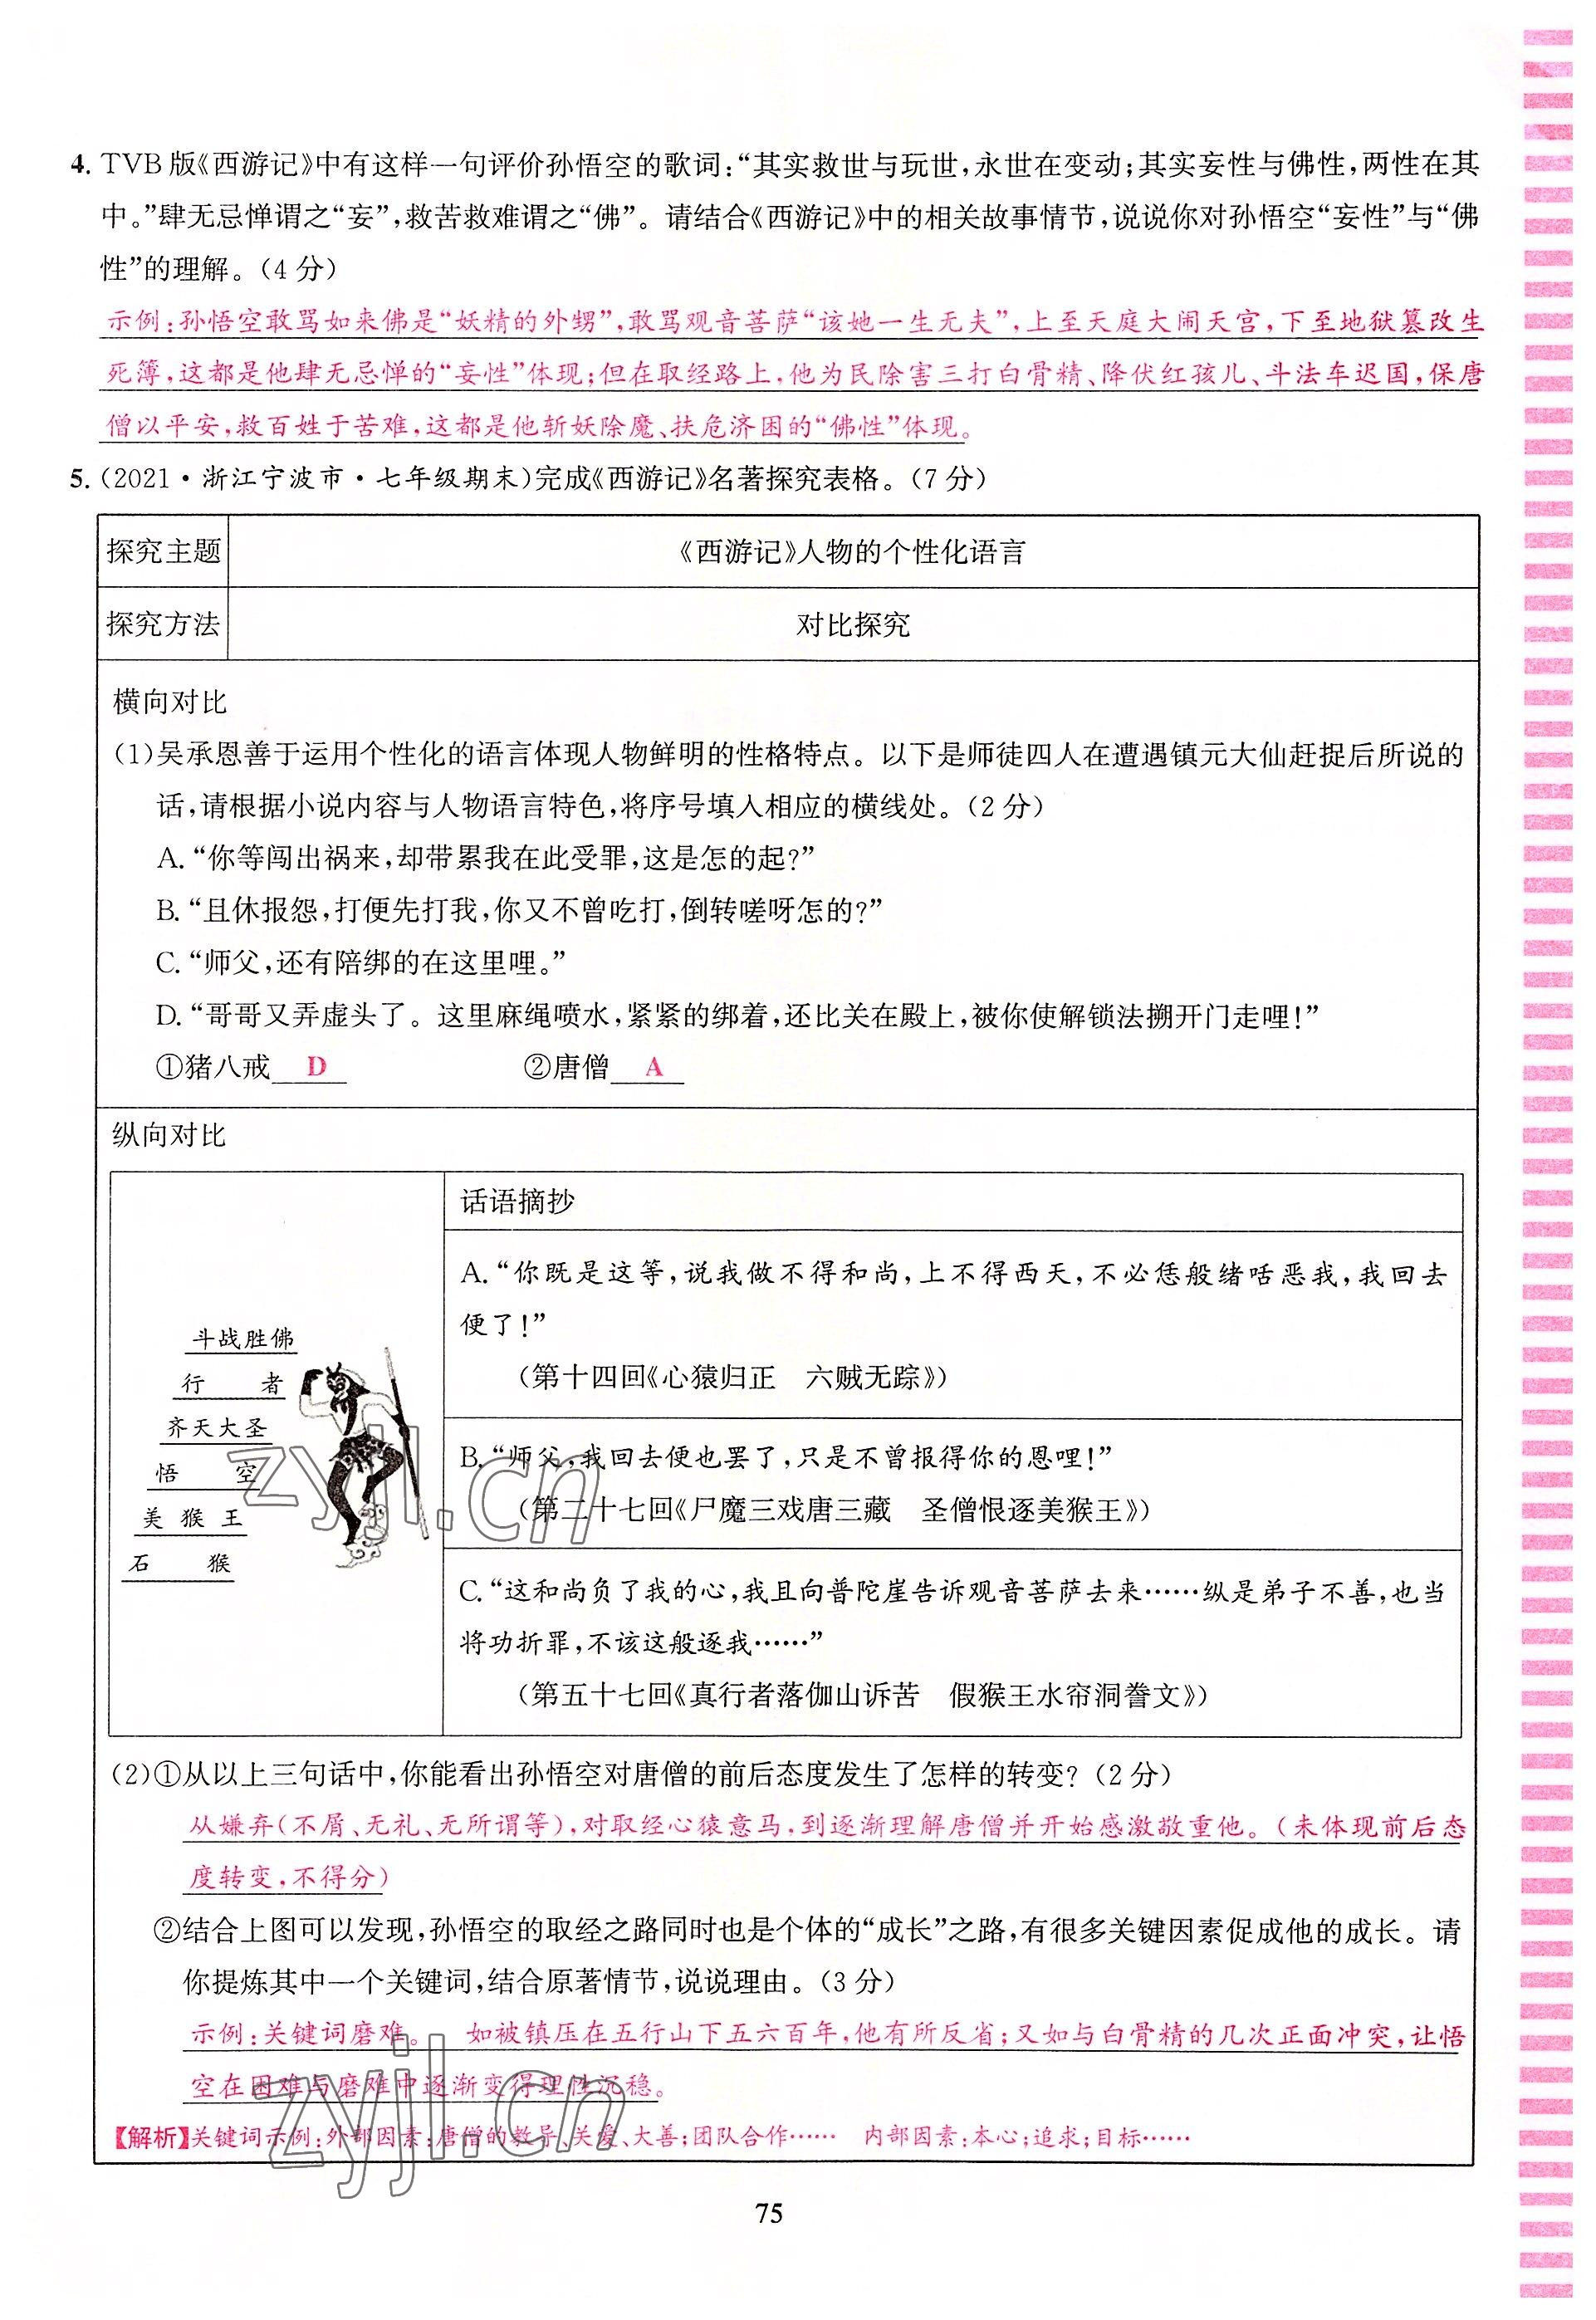 4. TVB 版《西游记》中有这样一句评价孙悟空的歌词:“其实救世与玩世,永世在变动;其实妄性与佛性,两性在其
中。”肆无忌惮谓之“妄”,救苦救难谓之“佛”。请结合《西游记》中的相关故事情节,说说你对孙悟空“妄性”与“佛
性”的理解。(4 分)
示例:孙悟空敢骂如来佛是“妖精的外甥”,敢骂观音菩萨“该她一生无夫”,上至天庭大闹天宫,下至地狱篡改生
死簿,这都是他肆无忌惮的“妄性”体现;但在取经路上,他为民除害三打白骨精、降伏红孩儿、斗法车迟国,保唐
僧以平安,救百姓于苦难,这都是他斩妖除魔、扶危济困的“佛性”体现。
5. (2021·浙江宁波市·七年级期末)完成《西游记》名著探究表格。(7 分)
探究主题 《西游记》人物的个性化语言
探究方法 对比探究
横向对比
(1)吴承恩善于运用个性化的语言体现人物鲜明的性格特点。以下是师徒四人在遭遇镇元大仙赶捉后所说的
话,请根据小说内容与人物语言特色,将序号填入相应的横线处。(2 分)
A. “你等闯出祸来,却带累我在此受罪,这是怎的起?”
B. “且休报怨,打便先打我,你又不曾吃打,倒转嗟呀怎的?”
C. “师父,还有陪绑的在这里哩。”
D. “哥哥又弄虚头了。这里麻绳喷水,紧紧的绑着,还比关在殿上,被你使解锁法搠开门走哩!”
①猪八戒 D ②唐僧 A
纵向对比
斗战胜佛
行 者
齐天大圣
悟 空
美 猴 王
石 猴
话语摘抄
A. “你既是这等,说我做不得和尚,上不得西天,不必恁般绪咶恶我,我回去
便了!”
(第十四回《心猿归正 六贼无踪》)
B. “师父,我回去便也罢了,只是不曾报得你的恩哩!”
(第二十七回《尸魔三戏唐三藏 圣僧恨逐美猴王》)
C. “这和尚负了我的心,我且向普陀崖告诉观音菩萨去来……纵是弟子不善,也当
将功折罪,不该这般逐我……”
(第五十七回《真行者落伽山诉苦 假猴王水帘洞誊文》)
(2)①从以上三句话中,你能看出孙悟空对唐僧的前后态度发生了怎样的转变?(2 分)
从嫌弃(不屑、无礼、无所谓等),对取经心猿意马,到逐渐理解唐僧并开始感激敬重他。(未体现前后态
度转变,不得分)
②结合上图可以发现,孙悟空的取经之路同时也是个体的“成长”之路,有很多关键因素促成他的成长。请
你提炼其中一个关键词,结合原著情节,说说理由。(3 分)
示例:关键词磨难。 如被镇压在五行山下五六百年,他有所反省;又如与白骨精的几次正面冲突,让悟
空在困难与磨难中逐渐变得理性沉稳。
【解析】关键词示例:外部因素:唐僧的教导、关爱、大善;团队合作…… 内部因素:本心;追求;目标……
75
zyjl.cn
zyjl.cn